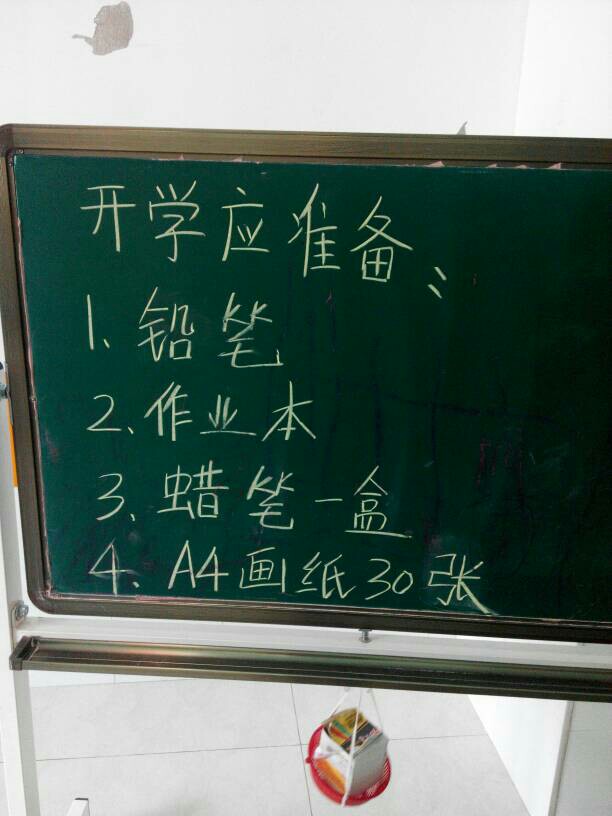 开学应准备:
1、铅笔
2、作业本
3、蜡笔一盒
4、A4画纸30张